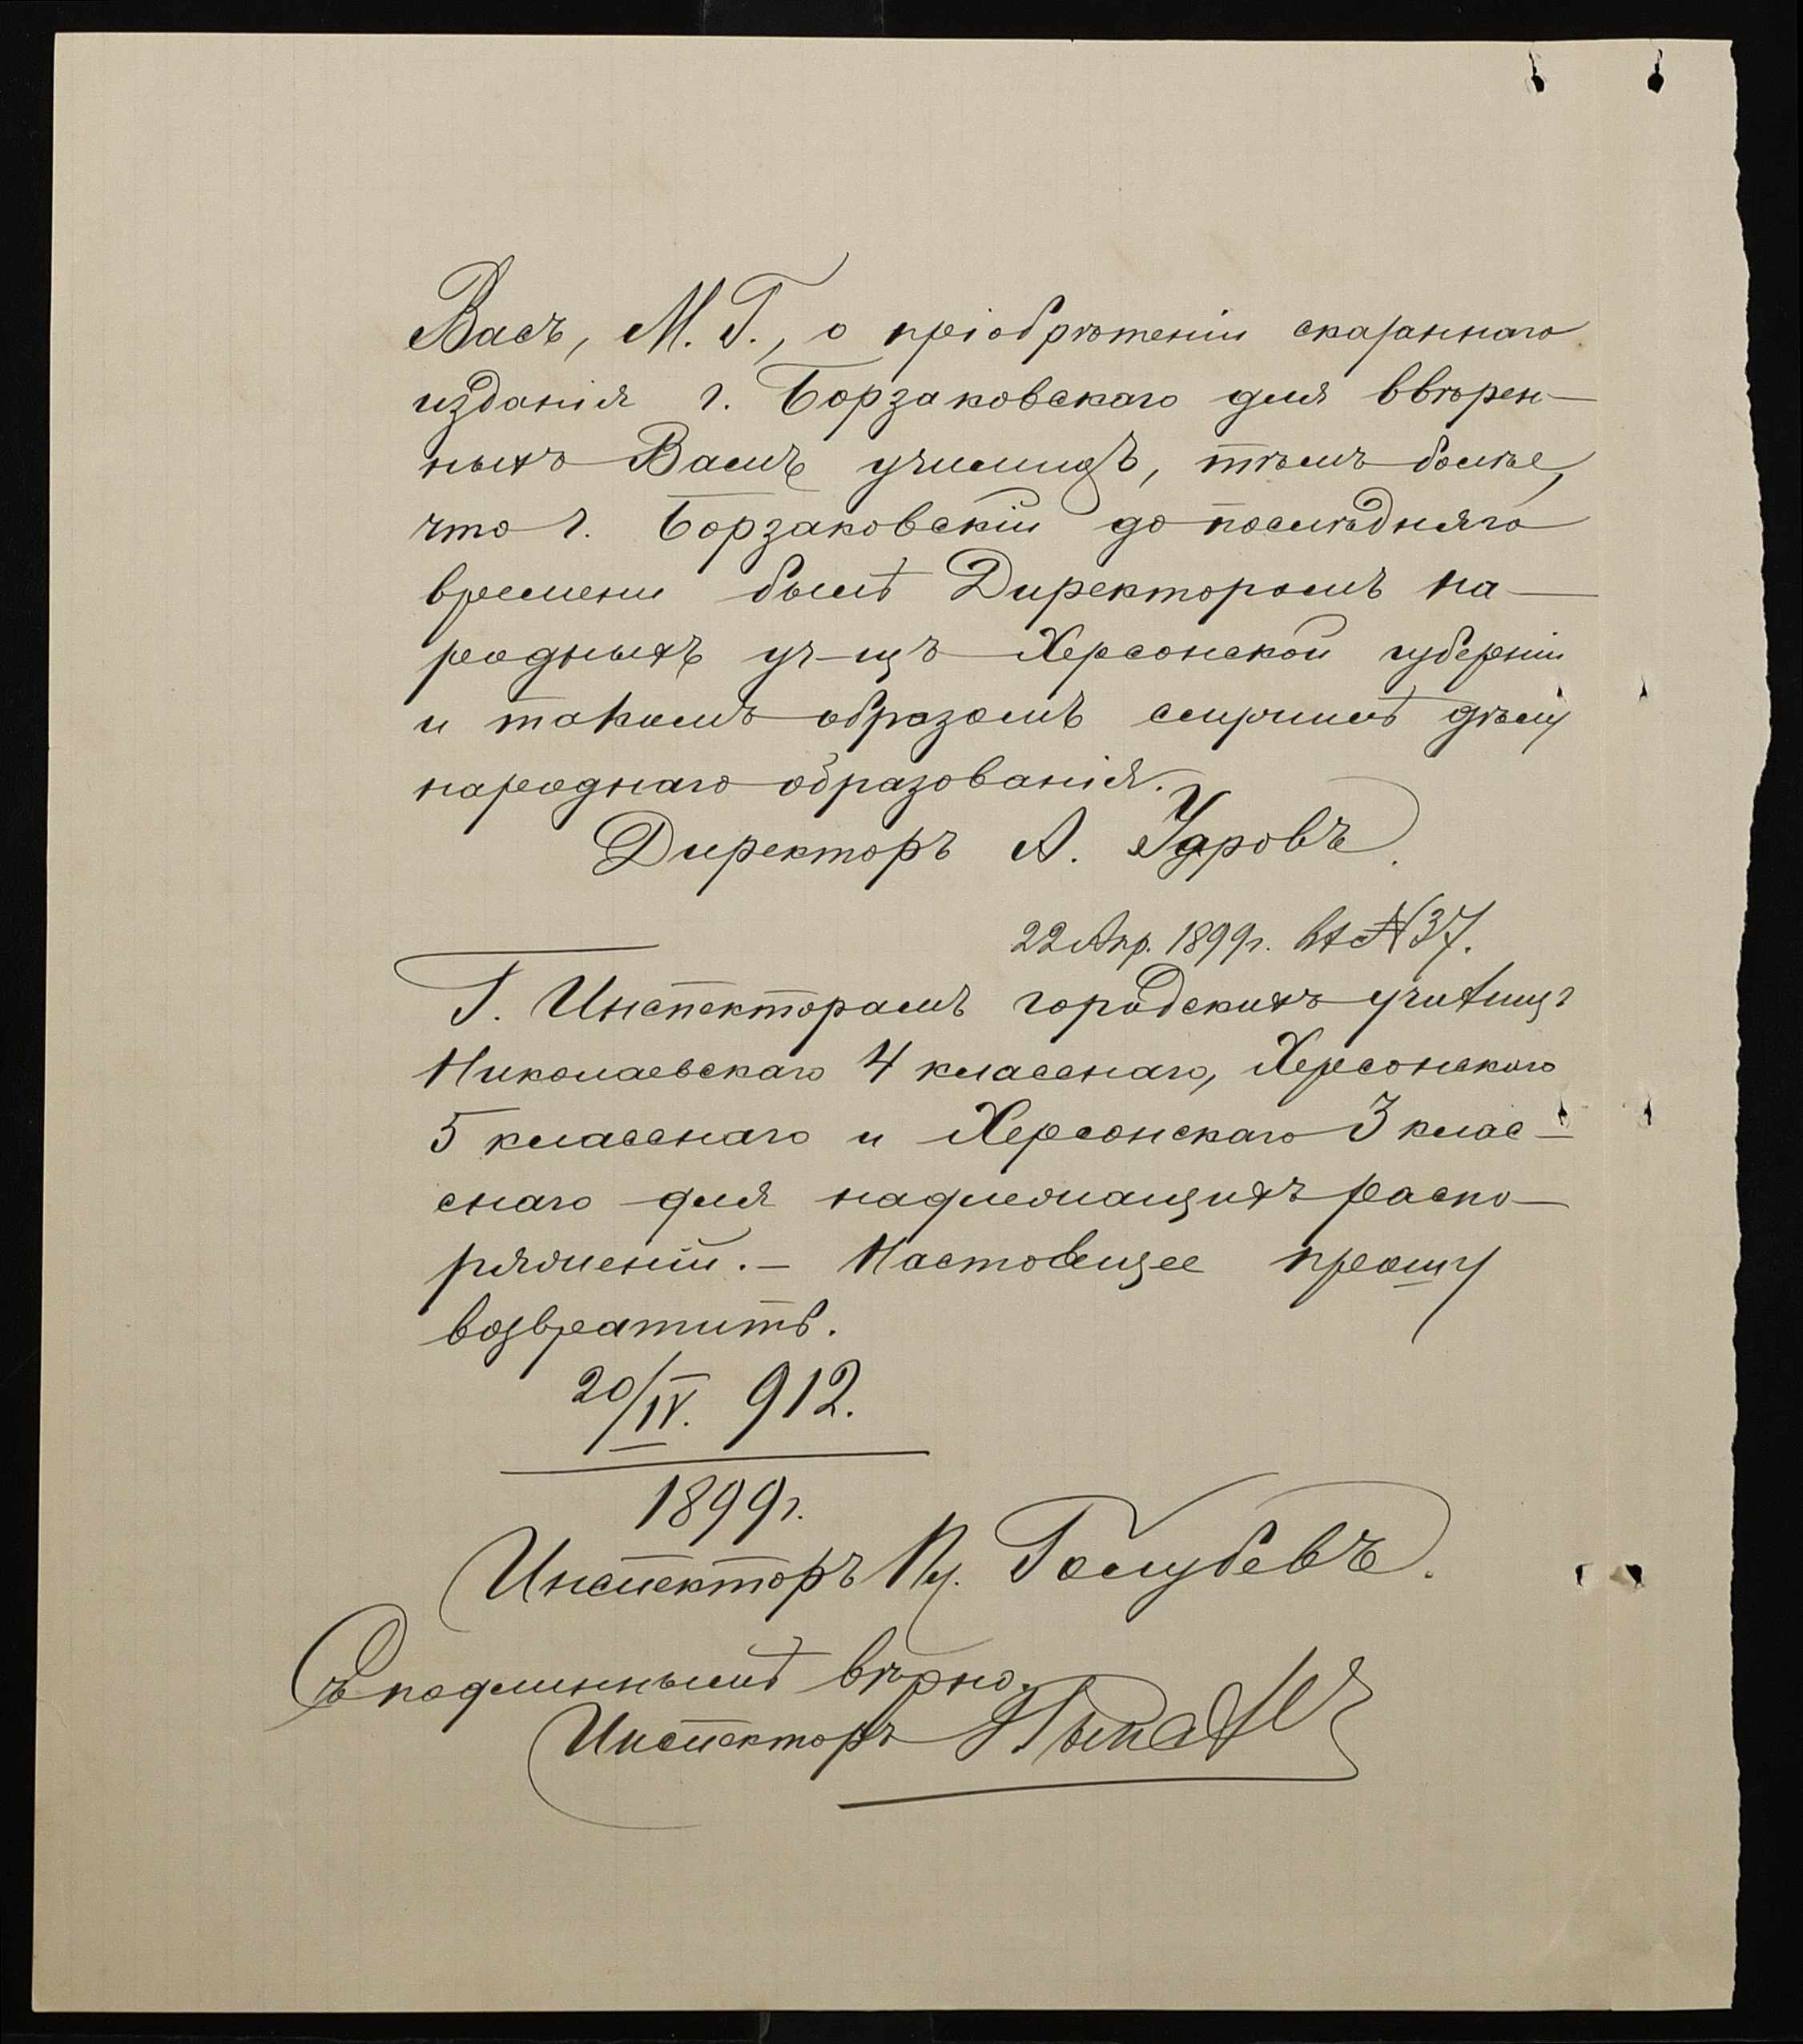 Васъ, М. Г., о пріобрѣтеніи сказаннаго
изданія г. Борзаковскаго для ввѣрен-
ныхъ Вамъ училищъ, тѣмъ болѣе,
что г. Борзаковскій до послѣдняго
времени былъ Директоромъ на-
родныхъ уч-щъ Херсонской губерніи
и такимъ образомъ служилъ дѣлу
народнаго образованія.
Директоръ А. Удровъ.
22 Апр. 1899г. вх № 37.
Г. Инспекторамъ городскихъ училищъ
Николаевскаго 4 класснаго, Херсонскаго
5 класснаго и Херсонскаго 3 клас-
снаго для надлежащихъ распо-
ряженій. – Настоящее прошу
возвратить.
20/IV. 912.
1899г.
Инспекторъ Голубевъ.
Съ подлиннымъ вѣрно.
Инспекторъ